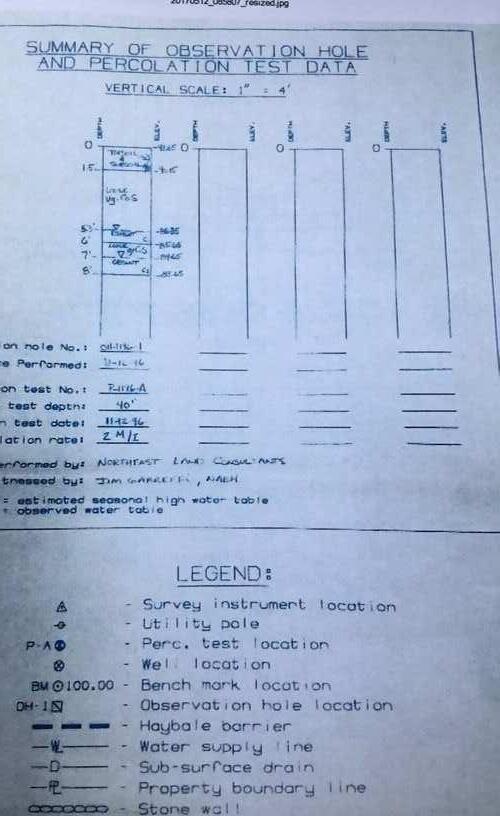 20170512_085807_resized.jpg
SUMMARY OF OBSERVATION HOLE
AND PERCOLATION TEST DATA
VERTICAL SCALE: 1" = 4'
DEPTH ELEV. DEPTH ELEV. DEPTH ELEV. DEPTH ELEV.
0 0 0 0
1.5
LOOSE
vg. COS
6'
7'
8'
on hole No.:
e Performed: 11-12-96
on test No.:
test depth: 40"
n test date: 11-12-96
lation rate: 2 M/I
erformed by: NORTHEAST LAND CONSULTANTS
tnessed by: JIM
= estimated seasonal high water table
= observed water table
LEGEND:
- Survey instrument location
- Utility pole
P-A - Perc. test location
- Well location
BM 100.00 - Bench mark location
OH-1 - Observation hole location
- Haybale barrier
W - Water supply line
D - Sub-surface drain
PL - Property boundary line
- Stone wall